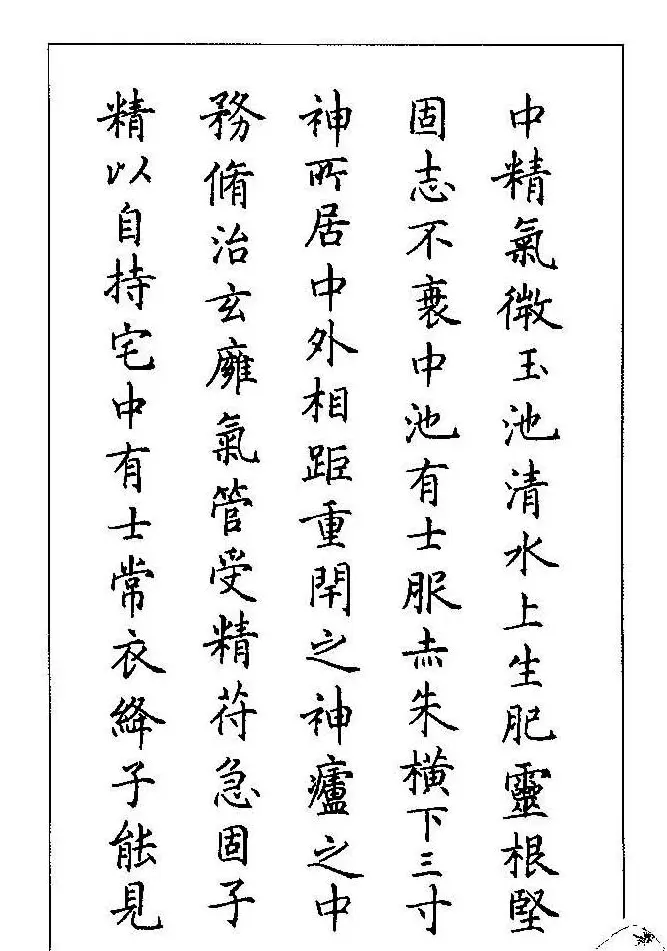 中精氣微玉池清水上生肥靈根堅
固志不衰中池有士服赤朱橫下三寸
神所居中外相距重閇之神廬之中
務脩治玄廱氣管受精苻急固子
精以自持宅中有士常衣絳子能見